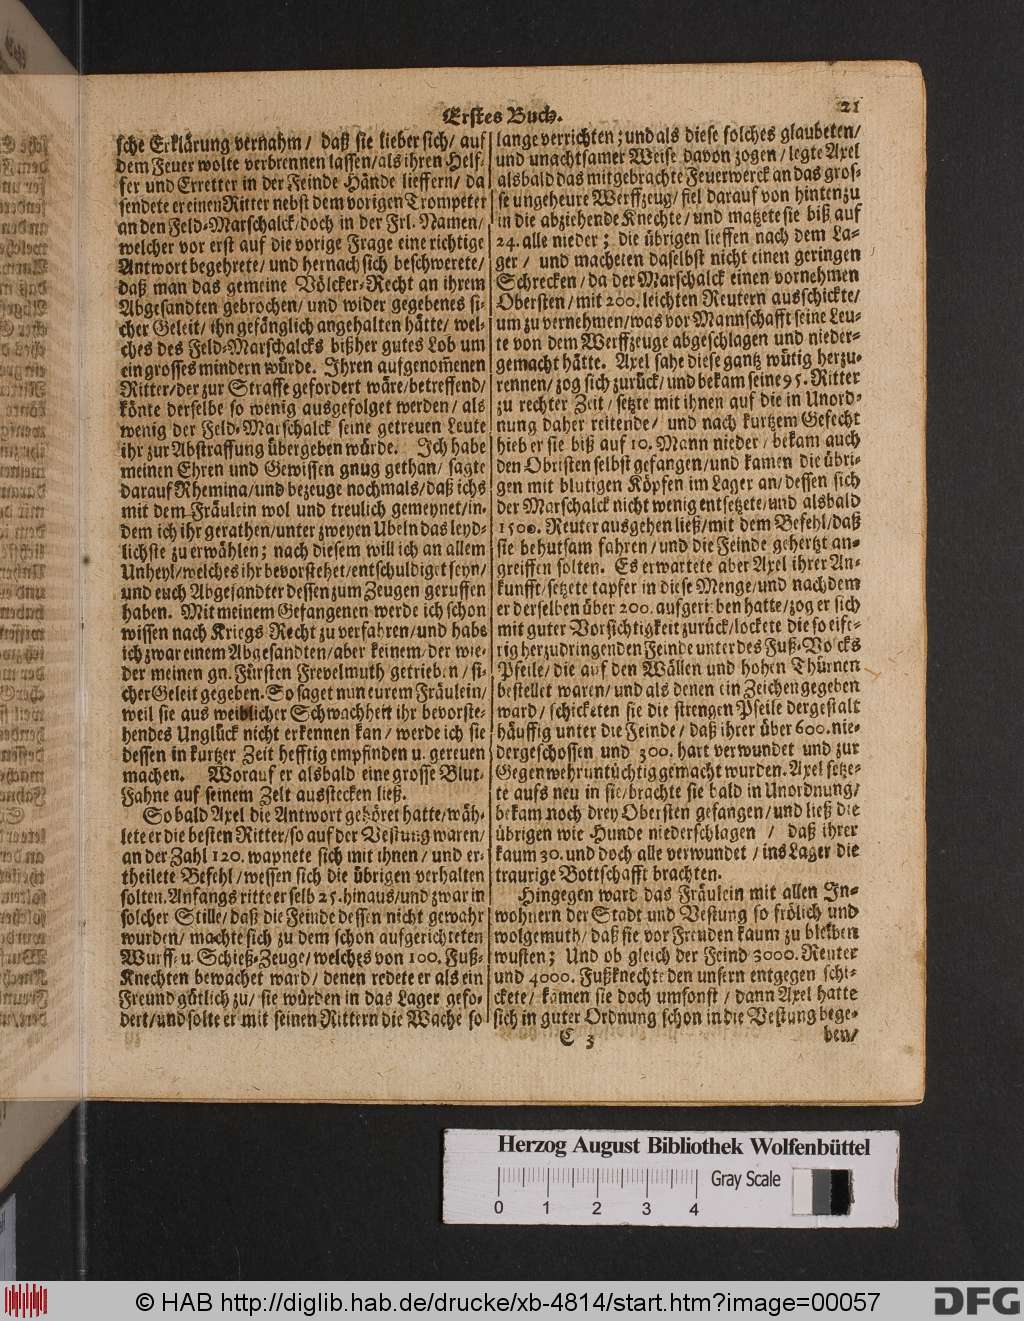 Erstes Buch.
21
sche Erklärung vernahm / daß sie lieber sich / auf
dem Feuer wolte verbrennen lassen / als ihren Helf-
fer und Erretter in der Feinde Hände lieffern / da
sendete er einen Ritter nebst dem vorigen Trompeter
an den Feld-Marschalck / doch in der Frl. Namen /
welcher vor erst auf die vorige Frage eine richtige
Antwort begehrete / und hernach sich beschwerete /
daß man das gemeine Völcker-Recht an ihrem
Abgesandten gebrochen / und wider gegebenes si-
cher Geleit / ihn gefänglich angehalten hätte / wel-
ches des Feld-Marschalcks bißher gutes Lob um
ein grosses mindern würde. Ihren aufgenom̃enen
Ritter / der zur Straffe gefordert wäre / betreffend /
könte derselbe so wenig ausgefolget werden / als
wenig der Feld-Marschalck seine getreuen Leute
ihr zur Abstraffung übergeben würde. Ich habe
meinen Ehren und Gewissen gnug gethan / sagte
darauf Rhemina / und bezeuge nochmals / daß ichs
mit dem Fräulein wol und treulich gemeynet / in-
dem ich ihr gerathen / unter zweyen Ubeln das leyd-
lichste zu erwählen; nach diesem will ich an allem
Unheyl / welches ihr bevorstehet / entschuldiget seyn /
und euch Abgesandter dessen zum Zeugen geruffen
haben. Mit meinem Gefangenen werde ich schon
wissen nach Kriegs Recht zu verfahren / und habe
ich zwar einem Abgesandten / aber keinem / der wie-
der meinen gn. Fürsten Frevelmuth getrieben / si-
cher Geleit gegeben. So saget nun eurem Fräulein /
weil sie aus weiblicher Schwachheit ihr bevorste-
hendes Unglück nicht erkennen kan / werde ich sie
dessen in kurtzer Zeit hefftig empfinden u. gereuen
machen. Worauf er alsbald eine grosse Blut-
Fahne auf seinem Zelt ausstecken ließ.
So bald Axel die Antwort gehöret hatte / wäh-
lete er die besten Ritter / so auf der Vestung waren /
an der Zahl 120. wapnete sich mit ihnen / und er-
theilete Befehl / wessen sich die übrigen verhalten
solten. Anfangs ritte er selb 25. hinaus / und zwar in
solcher Stille / daß die Feinde dessen nicht gewahr
wurden / machte sich zu dem schon aufgerichteten
Wurff- u. Schieß-Zeuge / welches von 100. Fuß-
Knechten bewachet ward / denen redete er als ein
Freund götlich zu / sie würden in das Lager gefo-
dert / und solte er mit seinen Rittern die Wache so
lange verrichten; und als diese solches glaubeten /
und unachtsamer Weise davon zogen / legte Axel
alsbald das mitgebrachte Feuerwerck an das gros-
se ungeheure Werffzeug / fiel darauf von hinten zu
in die abziehende Knechte / und matzete sie biß auf
24. alle nieder; die übrigen lieffen nach dem La-
ger / und macheten daselbst nicht einen geringen
Schrecken / da der Marschalck einen vornehmen
Obersten / mit 200. leichten Reutern ausschickte /
um zu vernehmen / was vor Mannschafft seine Leu-
te von dem Werffzeuge abgeschlagen und nieder-
gemacht hätte. Axel sahe diese gantz wütig herzu-
rennen / zog sich zurück / und bekam seine 95. Ritter
zu rechter Zeit / setzte mit ihnen auf die in Unord-
nung daher reitende / und nach kurtzem Gefecht
hieb er sie biß auf 10. Mann nieder / bekam auch
den Obristen selbst gefangen / und kamen die übri-
gen mit blutigen Köpfen im Lager an / dessen sich
der Marschalck nicht wenig entsetzete / und alsbald
1500. Reuter ausgehen ließ / mit dem Befehl / daß
sie behutsam fahren / und die Feinde gehertzt an-
greiffen solten. Es erwartete aber Axel ihrer An-
kunfft / setzete tapfer in diese Menge / und nachdem
er derselben über 200. aufgerieben hatte / zog er sich
mit guter Vorsichtigkeit zurück / lockete die so eife-
rig herzudringenden Feinde unter des Fuß-Volcks
Pfeile / die auf den Wällen und hohen Thürnen
bestellet waren / und als denen ein Zeichen gegeben
ward / schicketen sie die strengen Pfeile dergestalt
häuffig unter die Feinde / daß ihrer über 600. nie-
dergeschossen und 300. hart verwundet und zur
Gegenwehr untüchtig gemacht wurden. Axel setze-
te aufs neu in sie / brachte sie bald in Unordnung /
bekam noch drey Obersten gefangen / und ließ die
übrigen wie Hunde niederschlagen / daß ihrer
kaum 30. und doch alle verwundet / ins Lager die
traurige Bottschafft brachten.
Hingegen ward das Fräulein mit allen In-
wohnern der Stadt und Vestung so frölich und
wolgemuth / daß sie vor Freuden kaum zu bleiben
wusten; Und ob gleich der Feind 3000. Reuter
und 4000. Fußknechte den unsern entgegen schi-
ckete / kamen sie doch umsonst / dann Axel hatte
sich in guter Ordnung schon in die Vestung bege-
C 3
ben /
Herzog August Bibliothek Wolfenbüttel
Gray Scale
0 1 2 3 4
© HAB http://diglib.hab.de/drucke/xb-4814/start.htm?image=00057
DFG